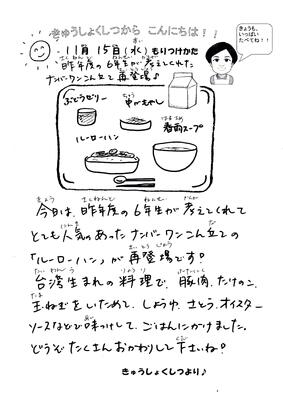 きゅうしょくしつから こんにちは！！
きょうも、
いっぱい
たべてね！！
11月 15日(水) もりつけかた
昨年度の6年生が考えてくれた
ナンバーワンこん立て 再登場♪
ぶどうゼリー
中かもやし
春雨スープ
ルーローハン
今日は、昨年度の6年生が考えてくれて
とても人気のあったナンバーワンこん立ての
「ルーローハン」が再登場です！
台湾生まれの料理で、豚肉、たけのこ、
玉ねぎをいためて、しょうゆ、さとう、オイスター
ソースなどで味つけして、ごはんにかけました。
どうぞたくさんおかわりして下さいね！
きゅうしょくしつより♪